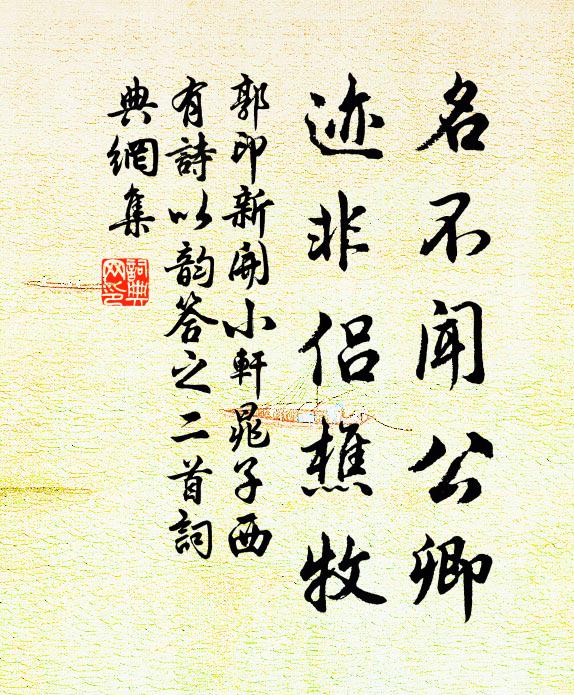 名不闻公卿
迹非侣樵牧
郭印新開小軒晁子西
有詩以韵答之二首詞
典網集
詞典网印